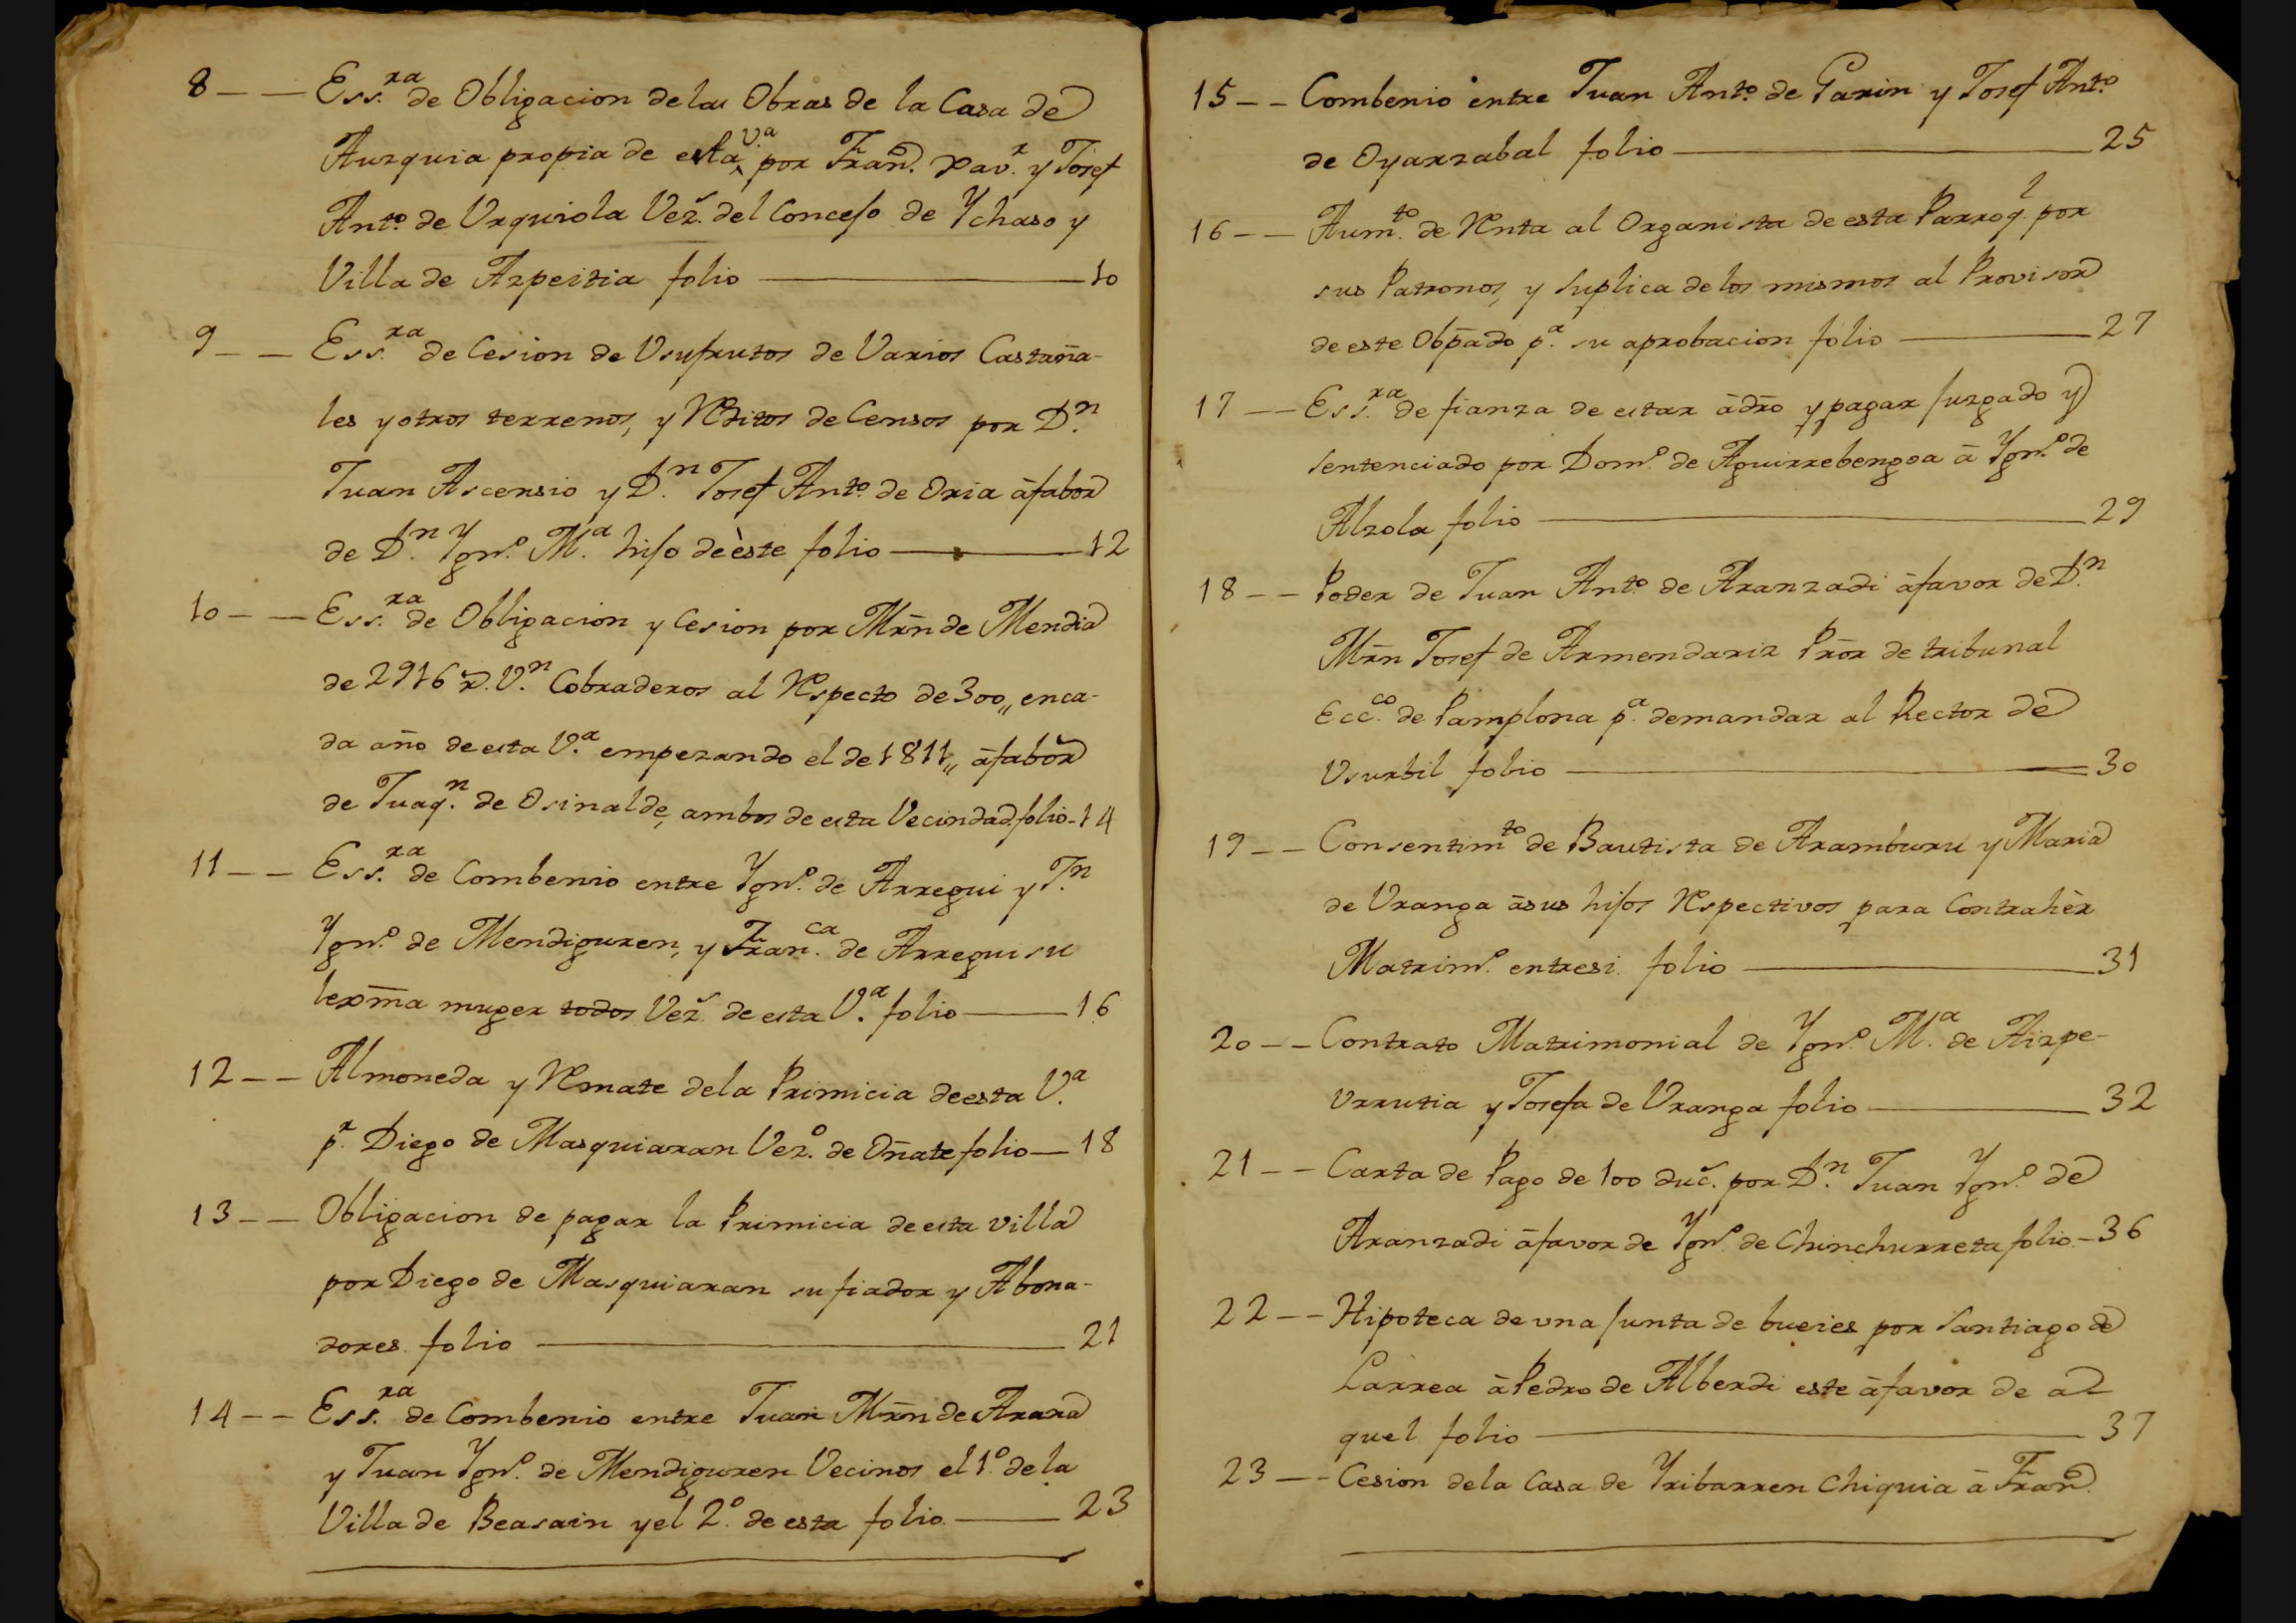 8 – – Ess.ra de Obligacion de las Obras de la Casa de
Aurquia propia de esta V.a por Fran.co Xav.r y Josef
Ant.o de Urquiola Vez.s del Concejo de Ychaso y
Villa de Azpeitia folio — 10
9 – – Ess.ra de Cesion de Usufrutos de Varios Castaña-
les y otros terrenos, y Reditos de Censos por D.n
Juan Ascensio y D.n Josef Ant.o de Oria à fabor
de D.n Ygn.o M.a hijo de èste folio — 12
10 – – Ess.ra de Obligacion y Cesion por Mrn de Mendia
de 2916 r.s V.n Cobraderos al Respecto de 300,, en ca-
da año de esta V.a empezando el de 1811,, à fabor
de Juaq.n de Osinalde, ambos de esta Vecindad folio – 14
11 – – Ess.ra de Combenio entre Ygn.o de Arregui y J.n
Ygn.o de Mendiguren, y Fran.ca de Arregui su
lexma muger todos Vez.s de esta V.a folio — 16
12 – – Almoneda y Remate de la Primicia de esta V.a
p.r Diego de Masquiaran Vez.o de Oñate folio — 18
13 – – Obligacion de pagar la Primicia de esta villa
por Diego de Masquiaran su fiador y Abona-
dores folio — 21
14 – – Ess.ra de Combenio entre Juan Mrn de Arana
y Juan Ygn.o de Mendiguren Vecinos el 1.o de la
Villa de Beasain y el 2.o de esta folio — 23
15 – – Combenio entre Juan Ant.o de Garin y Josef Ant.o
de Oyarzabal folio — 25
16 – – Aum.to de Renta al Organista de esta Parroq.l por
sus Patronos, y Suplica de los mismos al Provisor
de este Obpado p.a su aprobacion folio — 27
17 – – Ess.ra de fianza de estar à dro y pagar Juzgado y
Sentenciado por Dom.o de Aguirrebengoa à Ygn.o de
Alzola folio — 29
18 – – Poder de Juan Ant.o de Aranzadi à favor de D.n
Mrn Josef de Armendariz Pror de tribunal
Ecc.co de Pamplona p.a demandar al Rector de
Usurbil folio — 30
19 – – Consentim.to de Bautista de Aramburu y Maria
de Uranga à sus hijos Respectivos para Contrahèr
Matrim.o entre si folio — 31
20 – – Contrato Matrimonial de Ygn.o M.a de Aizpe-
Urrutia y Josefa de Uranga folio — 32
21 – – Carta de Pago de 100 duc.s por D.n Juan Ygn.o de
Aranzadi à favor de Ygn.o de Chinchurreta folio – 36
22 – – Hipoteca de una Junta de bueies por Santiago de
Larrea à Pedro de Alberdi este à favor de a-
quel folio — 37
23 – – Cesion de la Casa de Yribarren Chiquia à Fran.co